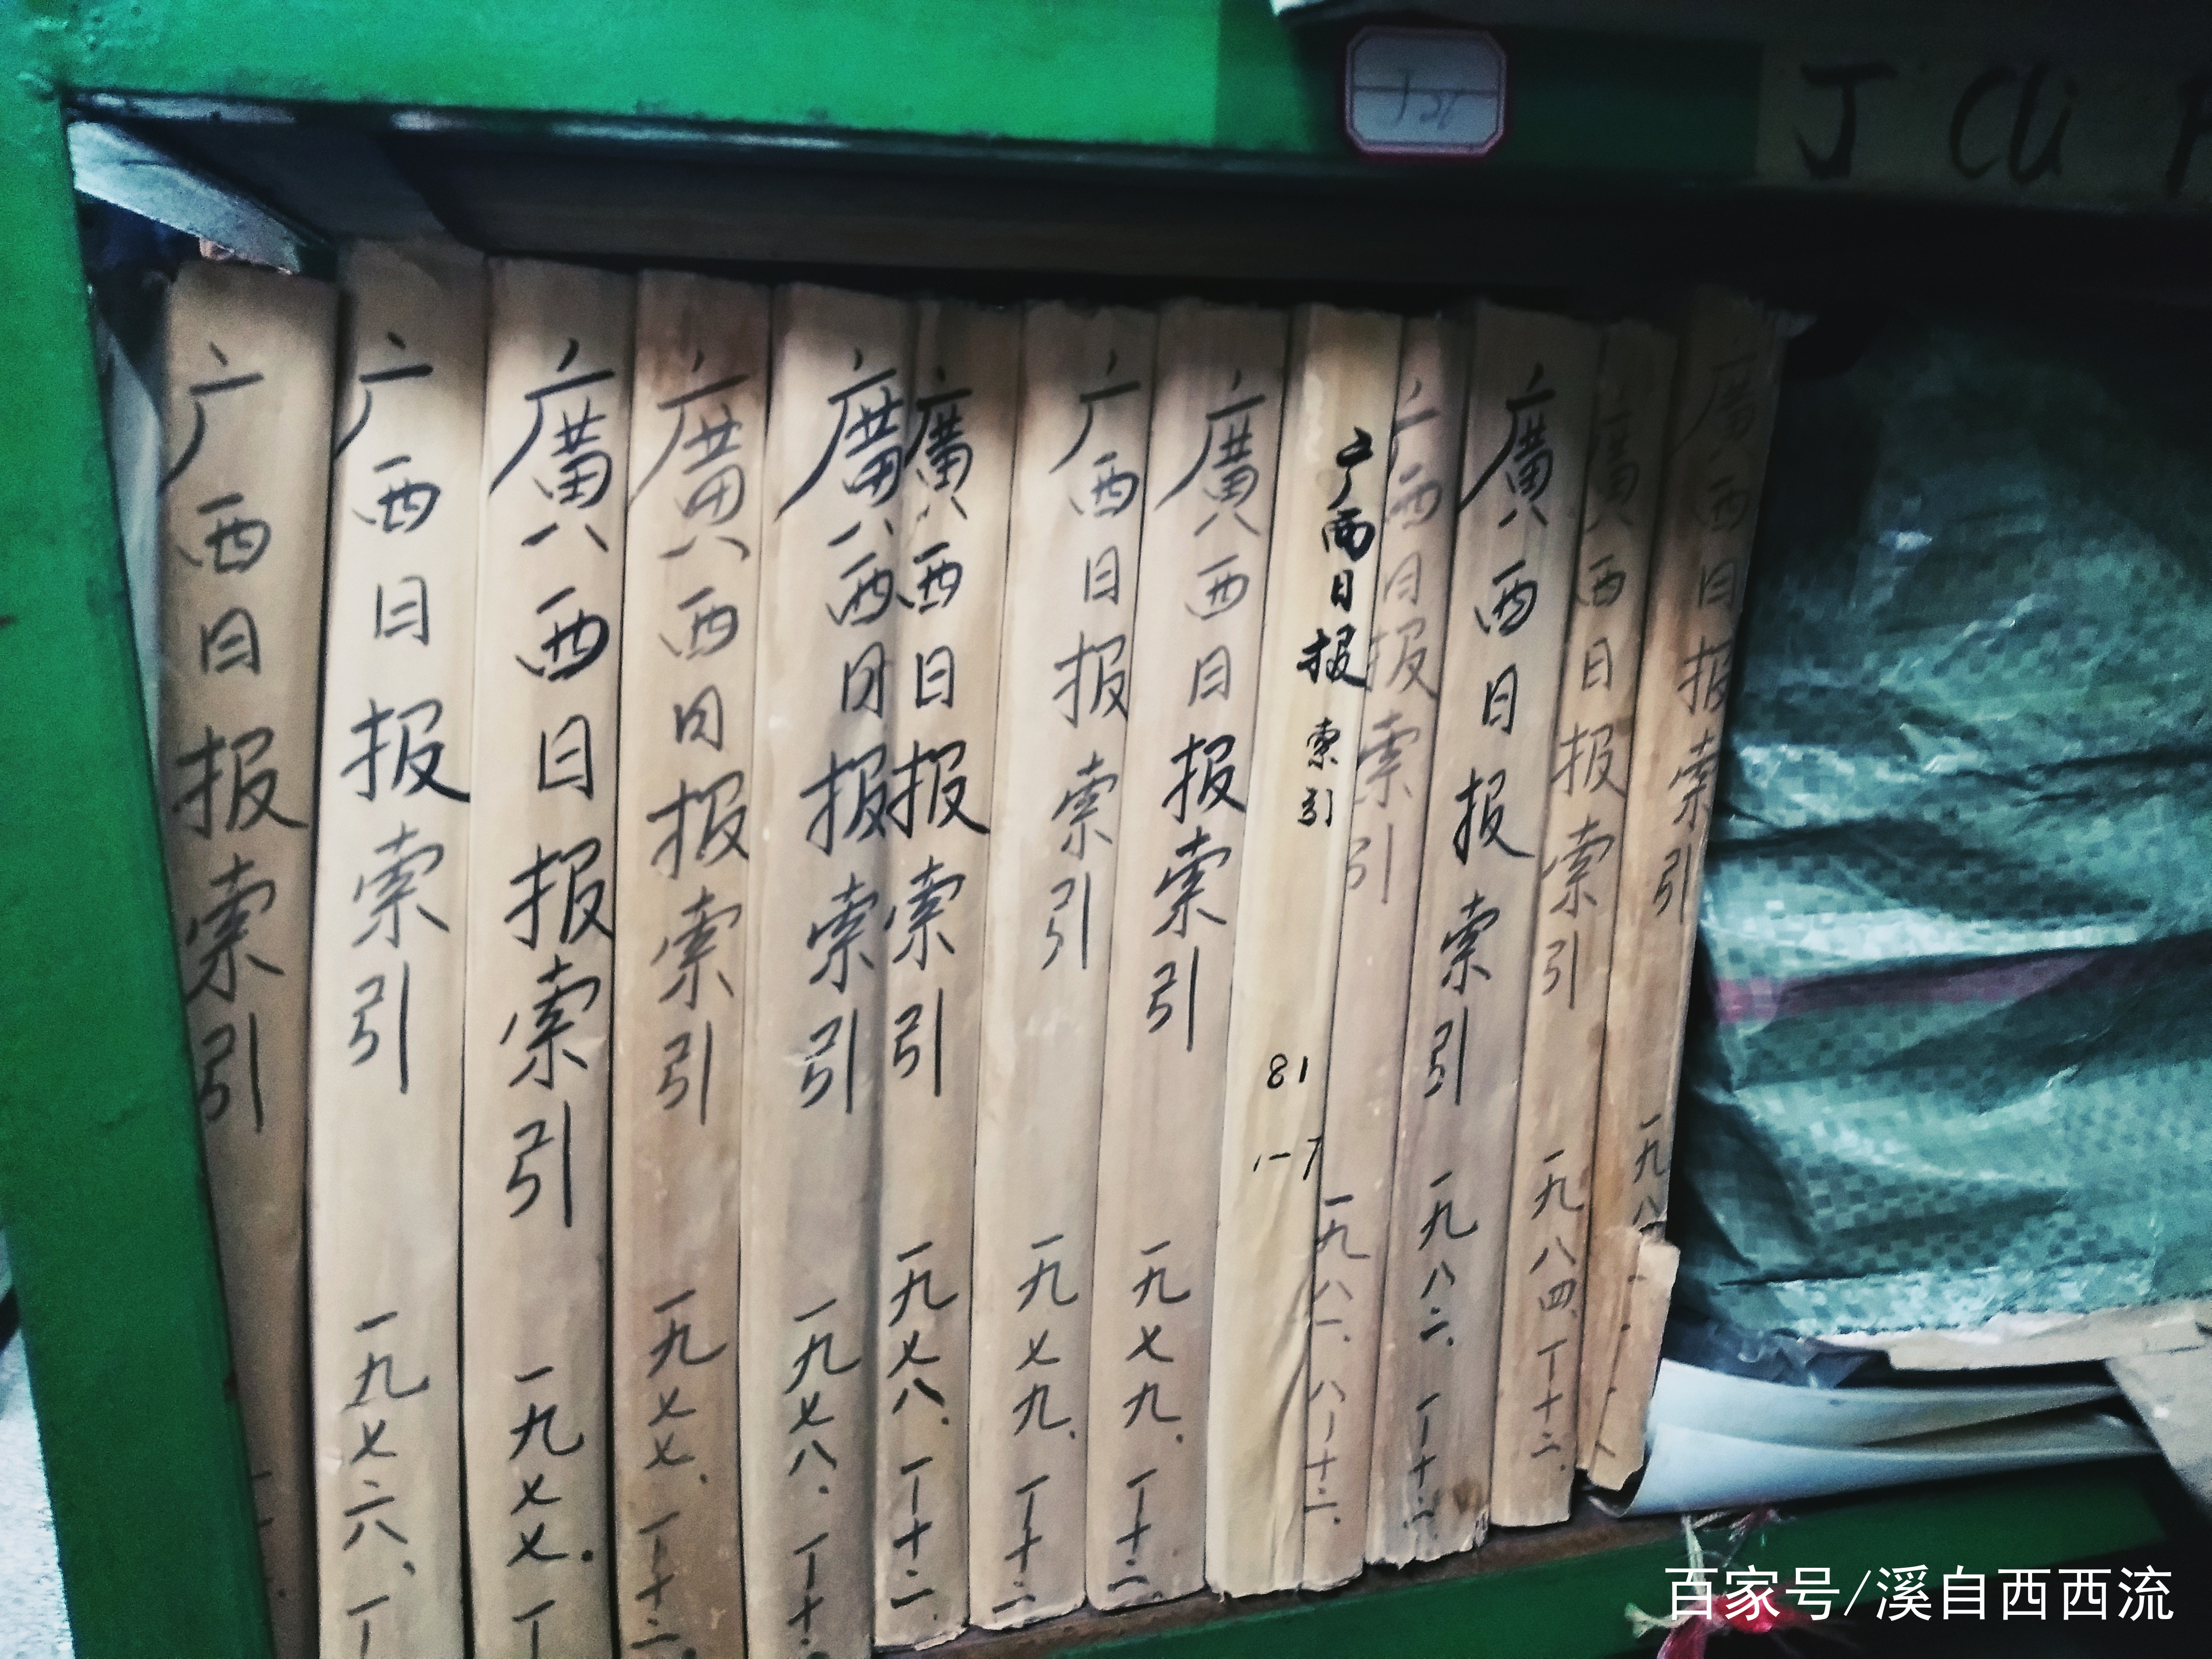 J Cli
广西日报索引
广西日报索引 一九七六.
廣西日报索引 一九七七.
廣西日报索引 一九七七. 一—十二.
廣西日报索引 一九七八. 一—十二.
廣西日报索引 一九七八. 一—十二.
广西日报索引 一九七九. 一—十二.
廣西日报索引 一九七九. 一—十二.
广西日报索引 81 1-7
广西日报索引 一九八一. 八—十二.
廣西日报索引 一九八二. 一—十二.
廣西日报索引 一九八四. 一—十二.
廣西日报索引 一九八
百家号/溪自西西流